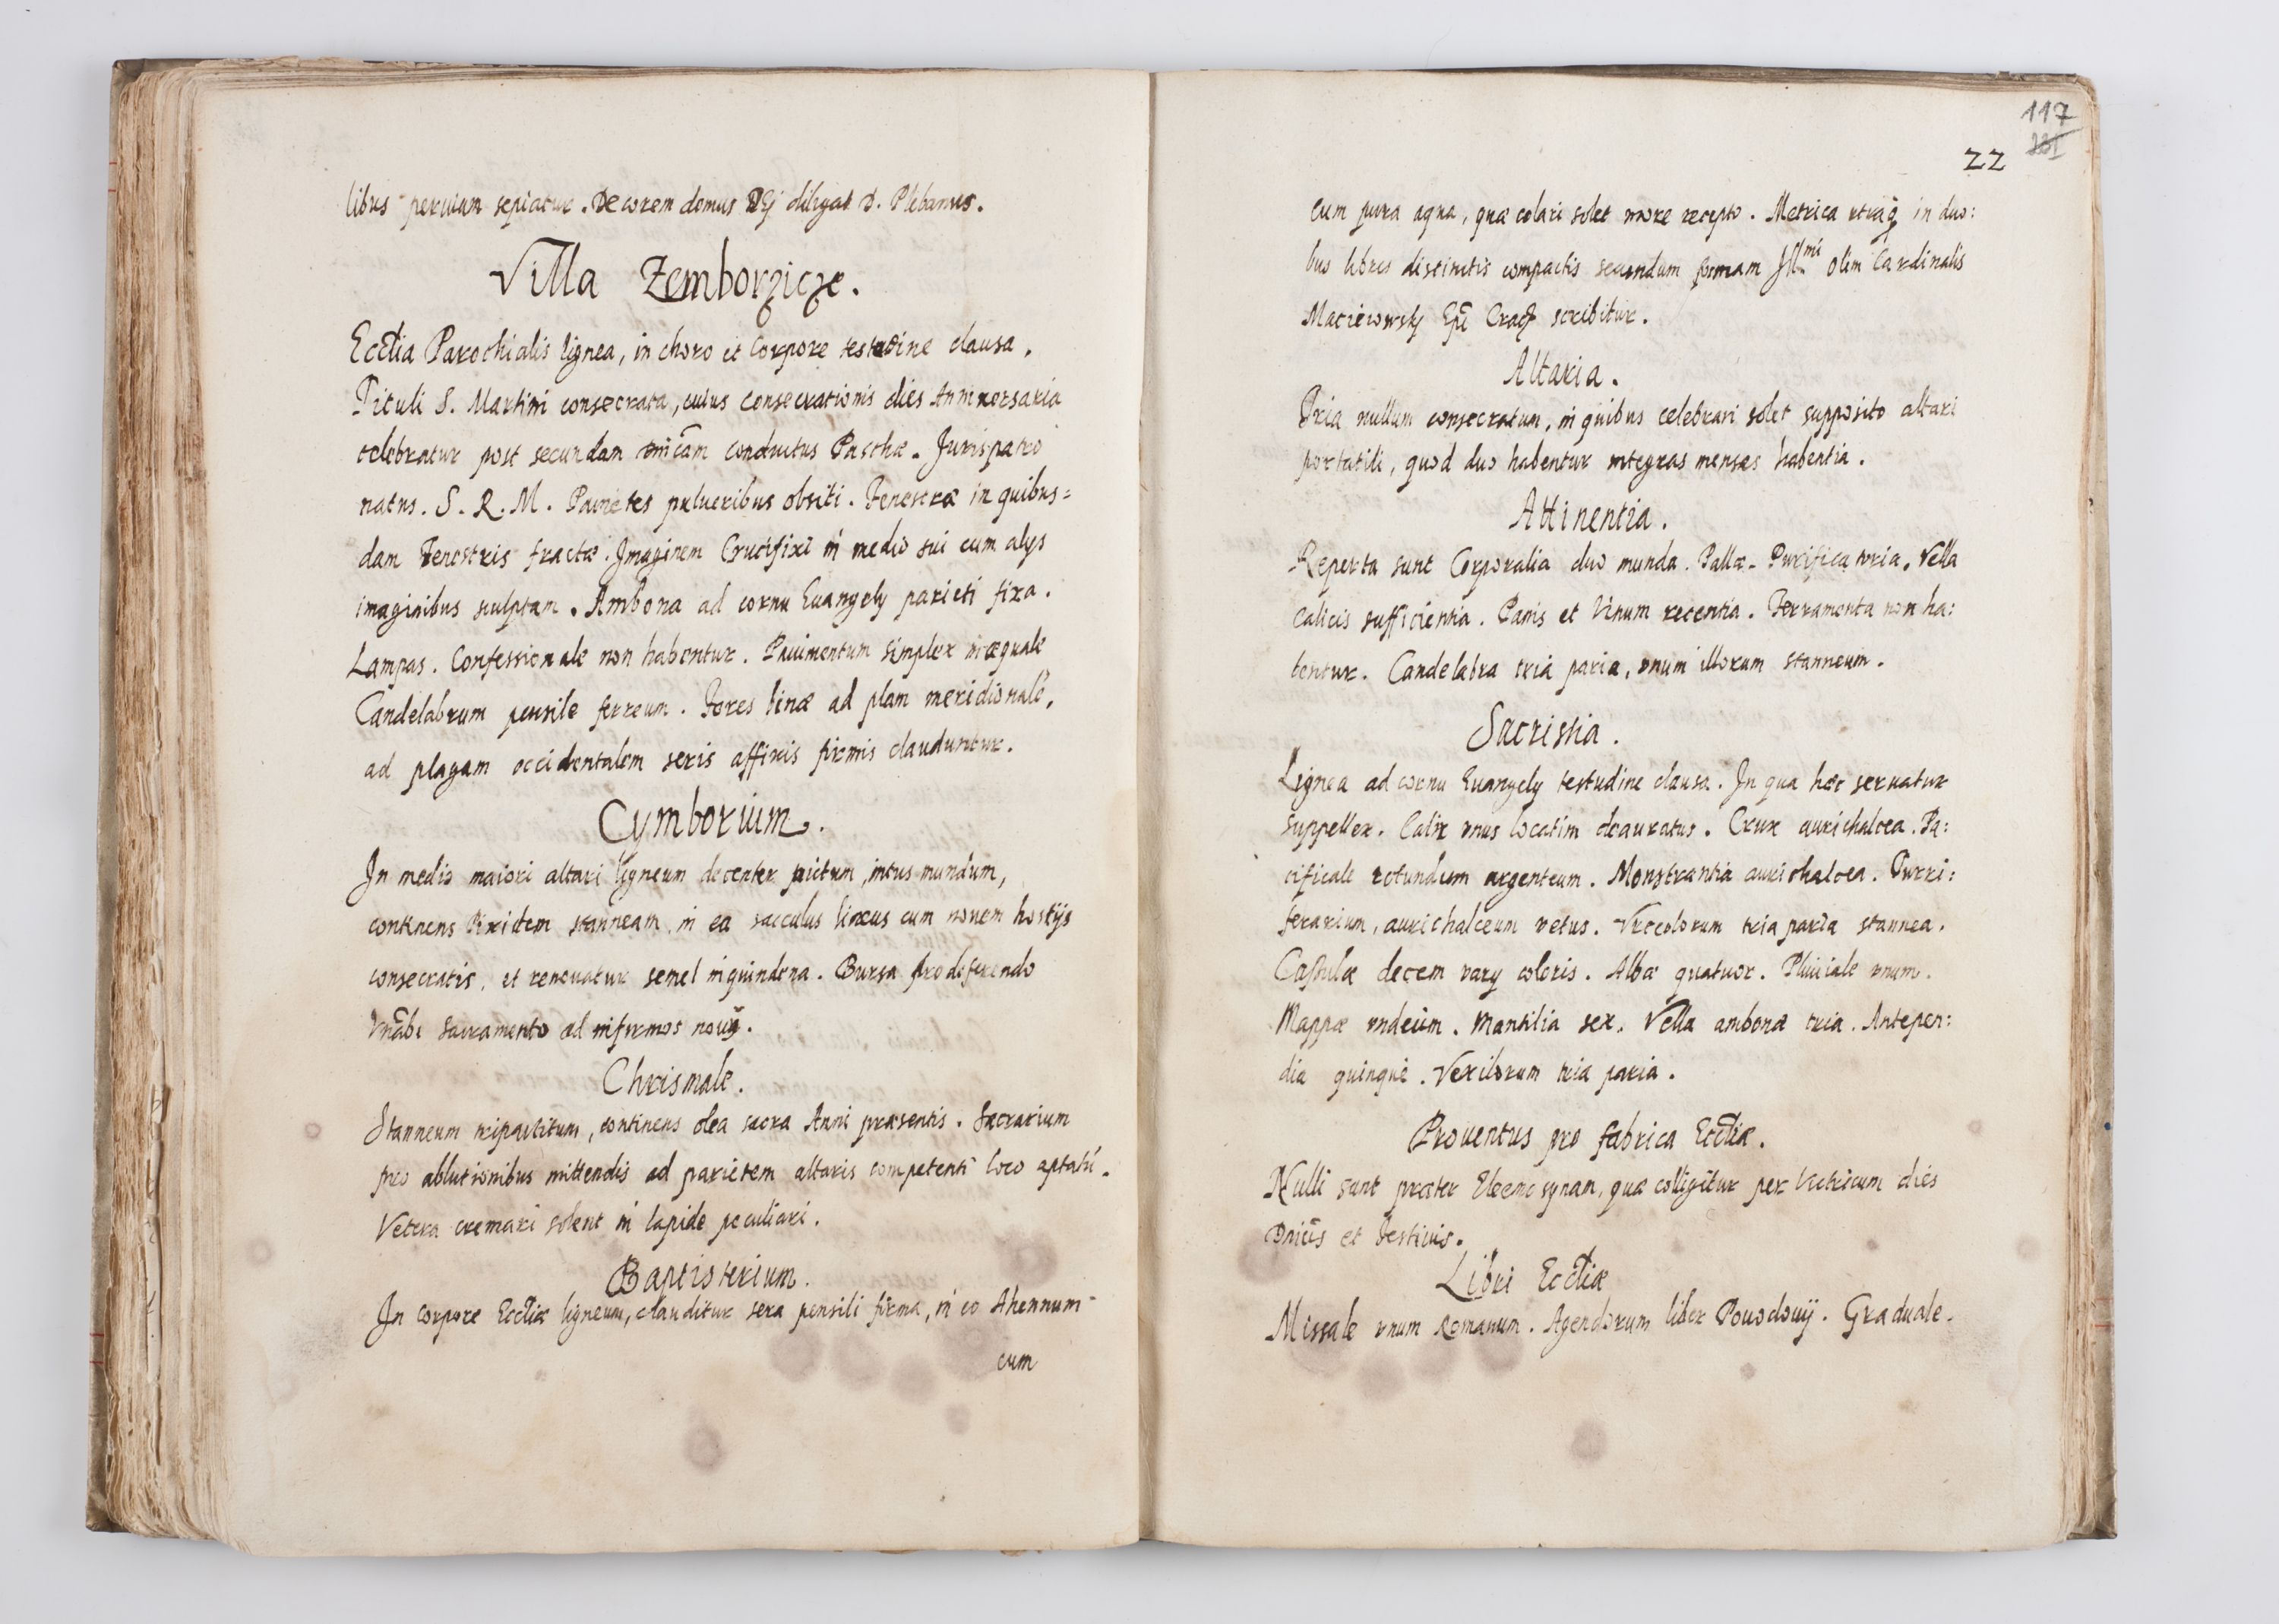 libus peruium sepiatur. Decorem domus DEj diligat D. Plebanus.
Villa Zemborzicze.
Ecctia Parochialis lignea, in choro et Corpore testudine clausa.
Tituli S. Martini consecrata, cuius Consecrationis dies Anniuersaria
celebratur post secundam dnicam conductus Paschæ. Jurispatro
natus. S. R. M. Parietes pulueribus obsiti. Fenestræ in quibus=
dam Fenestris fractæ. Jmaginem Crucifixi in medio sui cum alys
imaginibus sculptam. Ambona ad cornu Euangely parieti fixa.
Lampas. Confessionale non habentur. Pauimentum simplex inæquale
Candelabrum pensile ferreum. Fores binæ ad plam meridionalē,
ad plagam occidentalem seris affixis firmis clauduntur.
Cymborium.
Jn medio maiori altari ligneum decenter pictum, intus mundum,
continens Pixidem stanneam, in ea sacculus lineus cum nouem hostijs
consecratis, et renouatur semel in quindena. Bursa pro deferendo
Vnābi Sacramento ad infirmos noua.
Chrismale.
Stanneum tripartitum, continens olea sacra Anni præsentis. Sacrarium
pro ablutionibus mittendis ad parietem altaris competenti loco aptatū.
Vetera cremari solent in lapide peculiari.
Baptisterium.
Jn corpore Ecctiæ ligneum, clauditur sera pensili firma, in eo Ahennum
cum
117
22
cum pura aqua, quæ colari solet more recepto. Metrica utraq in duo:
bus libris distinctis compactis secundum formam Jll.mi olim Cardinalis
Maciejowskj Epī Crac scribitur.
Altaria.
Tria nullum consecratum, in quibus celebrari solet supposito altari
portatili, quod duo habentur integras mensas habentia.
Attinentia.
Reperta sunt Corporalia duo munda. Pallæ. Purificatoria. Vella
Calicis sufficientia. Panis et Vinum recentia. Ferramenta non ha:
bentur. Candelabra tria paria, vnum illorum stanneum.
Sacristia.
Lignea ad cornu Euangely testudine clausa. Jn qua hæc seruatur
Suppellex. Calix vnus locatim deauratus. Crux aurichalcea. Pa:
cificale rotundum argenteum. Monstrantia aurichalcea. Turri:
ferarium, aurichalceum vetus. Vrceolorum tria paria stannea.
Casulæ decem vary coloris. Albæ quatuor. Pluuiale vnum.
Mappæ vndecim. Mantilia sex. Vella ambonæ tria. Antepen:
dia quinque. Vexilorum tria paria.
Prouentus pro fabrica Ecctiæ.
Nulli sunt præter Eleemosynam, quæ colligitur per Vitricum dies
Dnicis et Festiuis.
Libri Ecctiæ
Missale vnum Romanum. Agendorum liber Powodowij. Graduale.